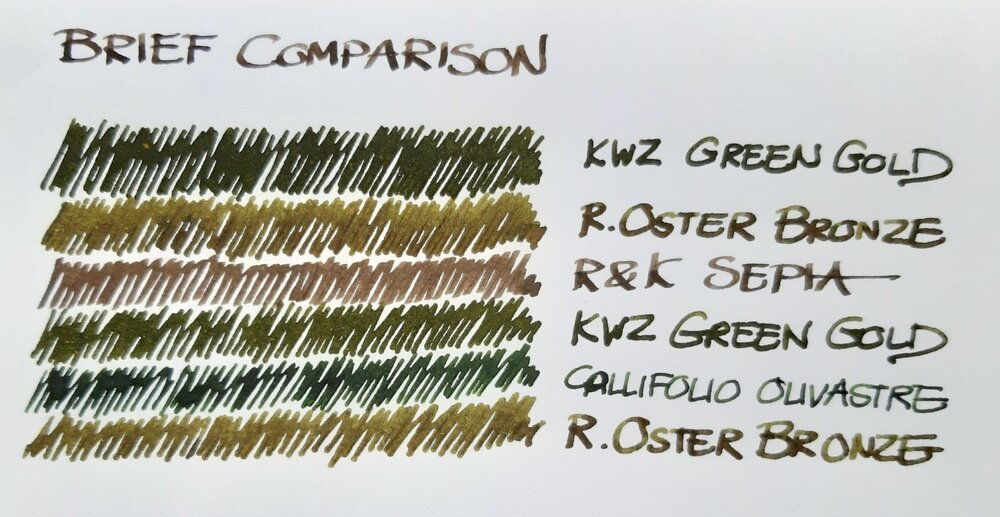 BRIEF COMPARISON
KWZ GREEN GOLD
R. OSTER BRONZE
R&K SEPIA
KWZ GREEN GOLD
CALLIFOLIO OLIVASTRE
R. OSTER BRONZE